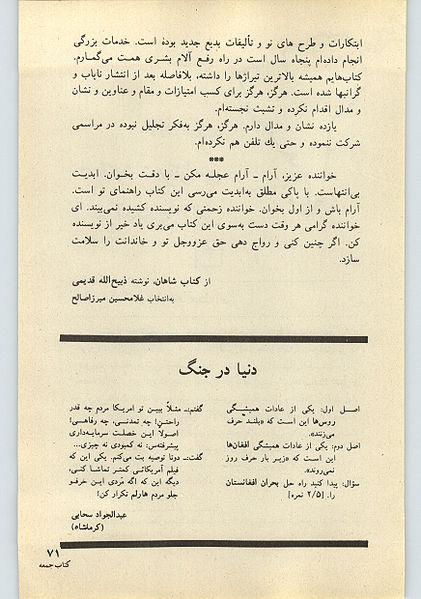 ابتکارات و طرح های نو و تألیفات بدیع جدید بوده است. خدمات بزرگی
انجام داده‌ام پنجاه سال است در راه رفع آلام بشری همت می‌گمارم.
کتاب‌هایم همیشه بالاترین تیراژها را داشته، بلافاصله بعد از انتشار نایاب و
گرانبها شده است. هرگز، هرگز برای کسب امتیازات و مقام و عناوین و نشان
و مدال اقدام نکرده و تشبث نجسته‌ام.
یازده نشان و مدال دارم. هرگز، هرگز به‌فکر تجلیل نبوده در مراسمی
شرکت ننموده و حتی یك تلفن هم نکرده‌ام.
***
خواننده عزیز، آرام ـ آرام عجله مکن ـ با دقت بخوان. ابدیت
بی‌انتهاست. با پاکی مطلق به‌ابدیت می‌رسی این کتاب راهنمای تو است.
آرام باش و از اول بخوان. خواننده زحمتی که نویسنده کشیده نمی‌بیند. ای
خواننده گرامی هر وقت دست به‌سوی این کتاب می‌بری یاد خیر از نویسنده
کن. اگر چنین کنی و رواج دهی حق عزوجل تو و خاندانت را سلامت
سازد.
از کتاب شاهان، نوشته ذبیح‌الله قدیمی
به‌انتخاب غلامحسین میرزاصالح
دنیا در جنگ
اصل اول: یکی از عادات همیشگی
روس‌ها این است که «بلند حرف
می‌زنند».
اصل دوم: یکی از عادات همیشگی افغان‌ها
این است که «زیر بار حرف زور
نمی‌روند».
سؤال: پیدا کنید راه حل بحران افغانستان
را. [۲/۵ نمره]
گفتم:ـ مثلاً ببین تو امریکا مردم چه قدر
راحتن! چه تمدنی، چه رفاهی!
اصولا این خصلت سرمایه‌داری
پیشرفتس: نه کمبودی نه چیزی...
گفت:ـ دوتا توصیه بت می‌کنم. یکی این که
فیلم آمریکائی کمتر تماشا کنی،
دیگه این که اگه مَردی این حرفو
جلو مردم هارلم تکرار کن!
عبدالجواد سحابی
(کرمانشاه)
۷۱
کتاب جمعه